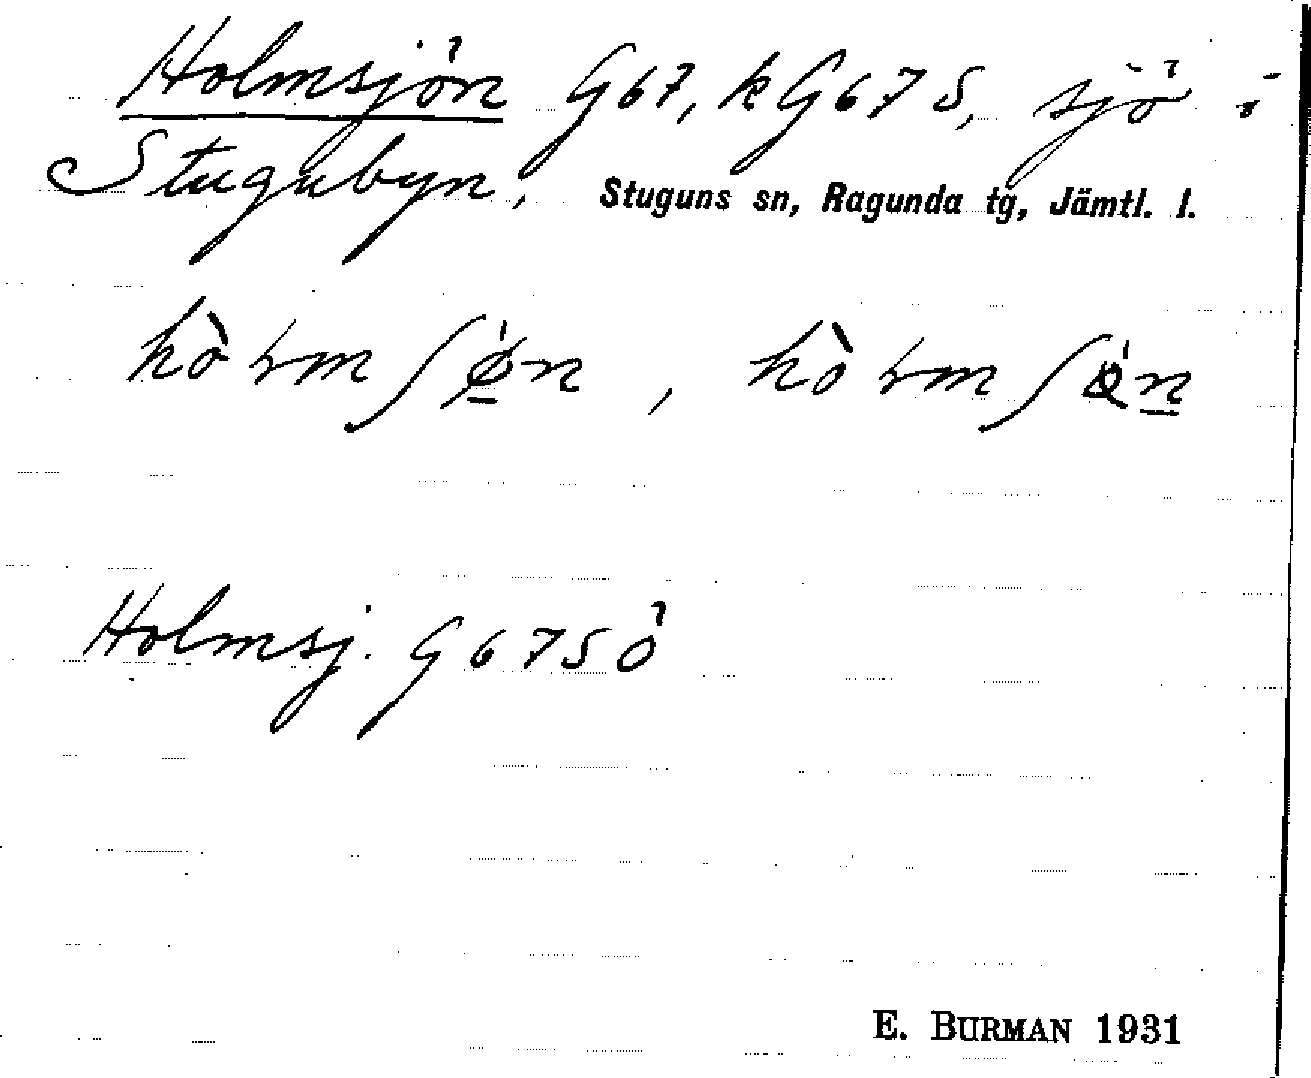 Holmsjön G67, kG67S, sjö i
Stugubyn, Stuguns sn, Ragunda tg, Jämtl. l.
Holmsj. G67SÖ
E. BURMAN 1931